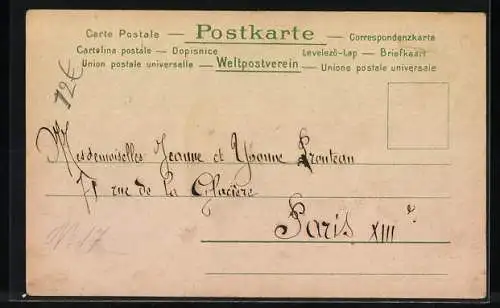 Carte Postale — Postkarte — Correspondenzkarte
Cartolina postale — Dopisnice Levelező-Lap — Briefkaart
Union postale universelle — Weltpostverein — Unione postale universale
12€
Mesdemoiselles Jeanne et Yvonne Pronteau
71 rue de la Glacière
Paris XIIIe